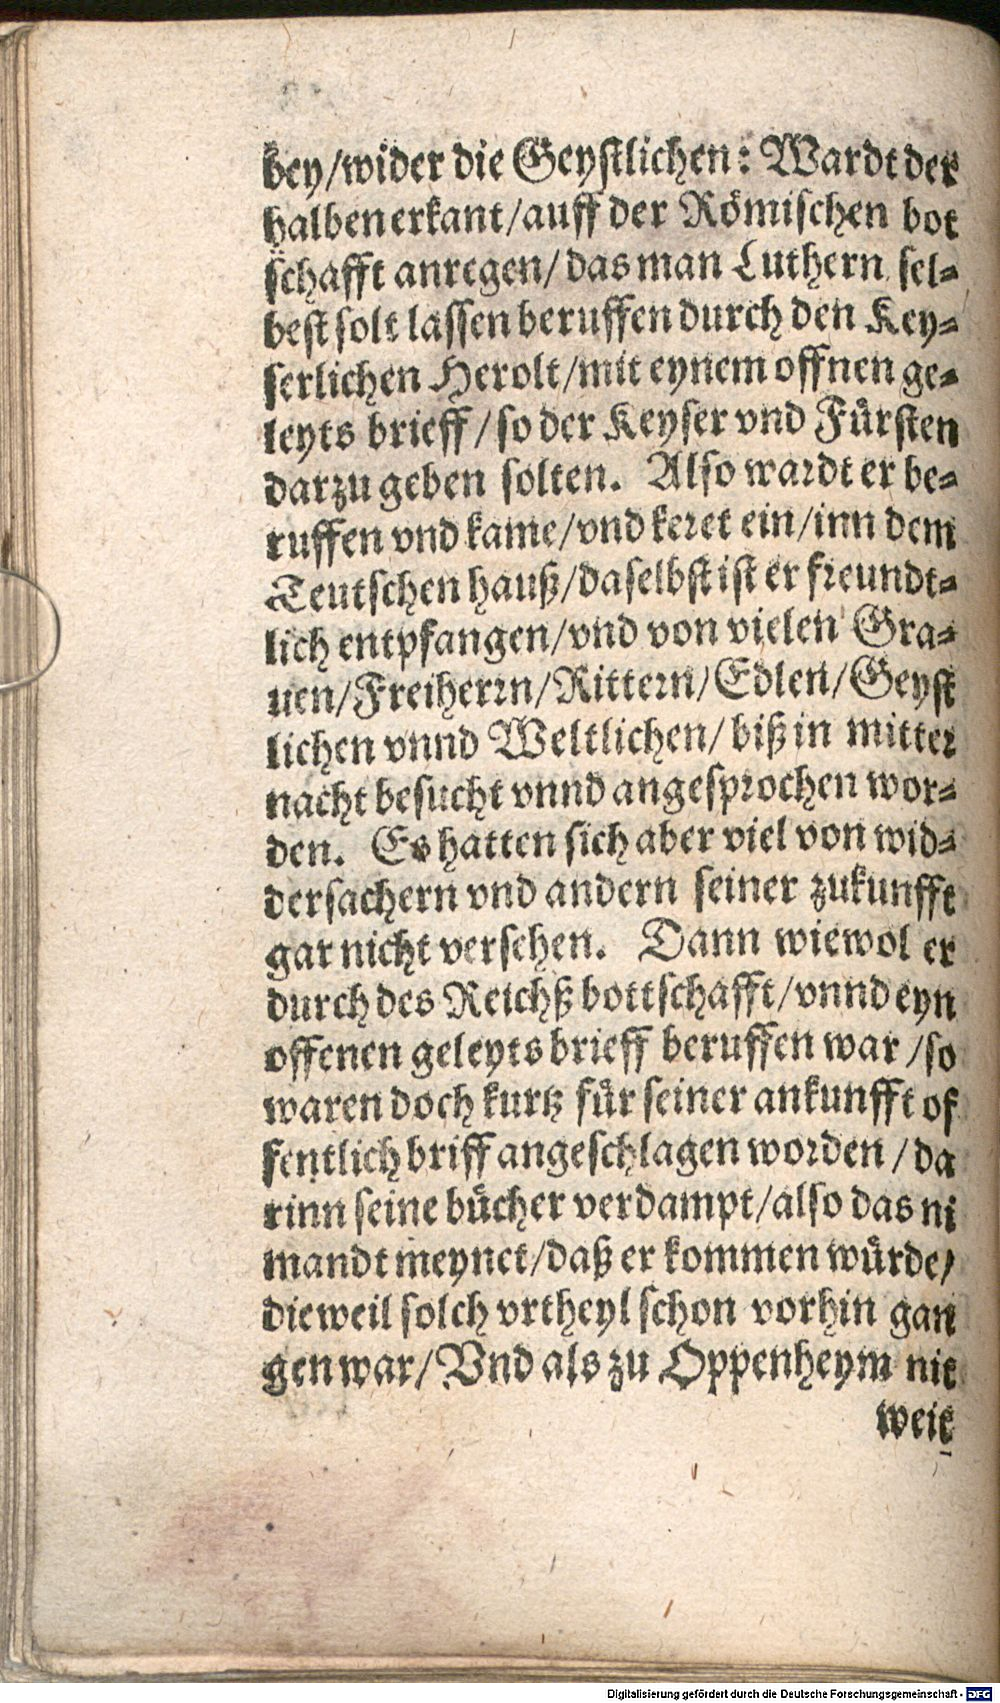 bey/wider die Geystlichen: Wardt der
halben erkant/auff der Römischen bot
schafft anregen/das man Luthern sel⸗
best solt lassen beruffen durch den Key⸗
serlichen Herolt/mit eynem offnen ge⸗
leyts brieff/so der Keyser vnd Fürsten
darzu geben solten. Also wardt er be⸗
ruffen vnd kame/vnd keret ein/inn dem
Teutschen hauß/daselbst ist er freundt⸗
lich entpfangen/vnd von vielen Gra⸗
uen/Freiherrn/Rittern/Edlen/Geyst
lichen vnnd Weltlichen/biß in mitter
nacht besucht vnnd angesprochen wor⸗
den. Es hatten sich aber viel von wid⸗
dersachern vnd andern seiner zukunfft
gar nicht versehen. Dann wiewol er
durch des Reichß bottschafft/vnnd eyn
offenen geleyts brieff beruffen war/so
waren doch kurtz für seiner ankunfft of
fentlich briff angeschlagen worden/da
rinn seine bücher verdampt/also das ni
mandt meynet/daß er kommen würde/
dieweil solch vrtheyl schon vorhin gan
gen war/Vnd als zu Oppenheym nit
weit
Digitalisierung gefördert durch die Deutsche Forschungsgemeinschaft - DFG